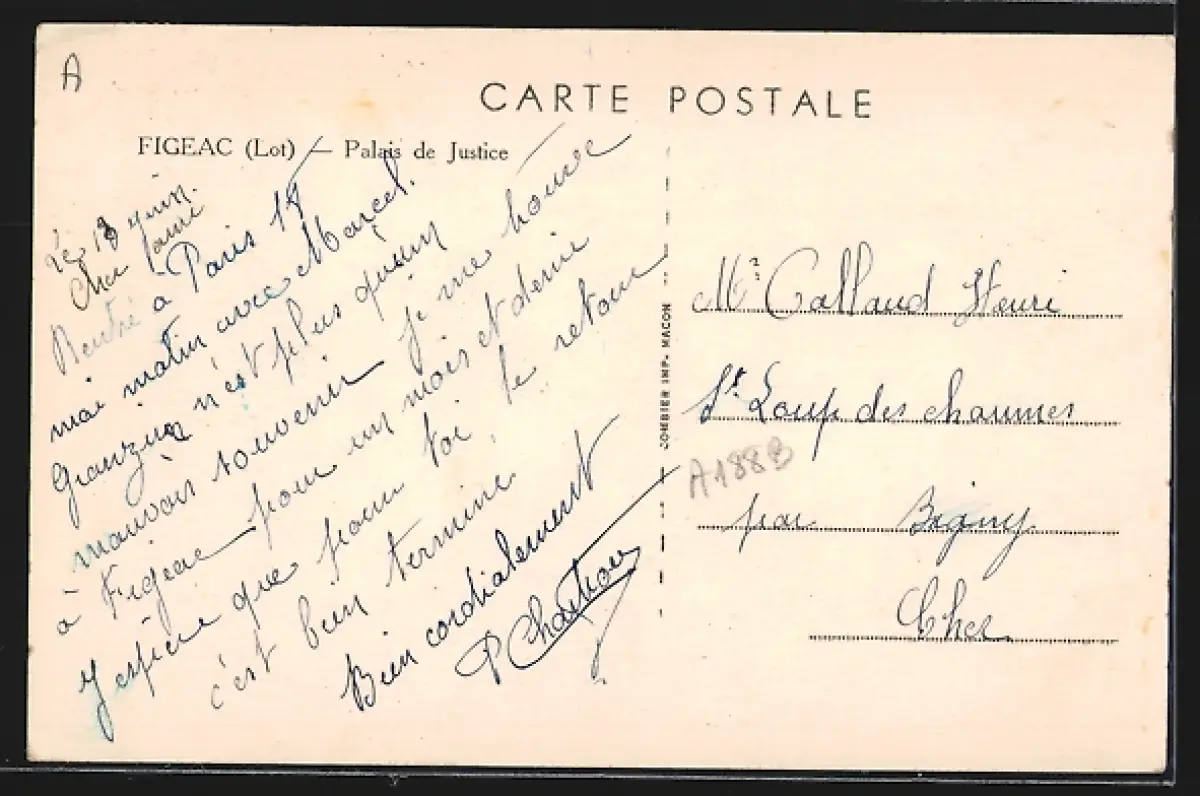 A
CARTE POSTALE
FIGEAC (Lot) — Palais de Justice
Le 13 juin.
Cher ami
Rentré à Paris 14
mai matin avec Marcel.
n'est plus qu'un
mauvais souvenir je me trouve
à Figeac pour un mois et demi
J espère que pour toi le retour
c'est bien terminé
Bien cordialement
COMBIER IMP. MACON
Mr Callaud Henri
St Loup des chaumes
A188B
par Bigny
Cher